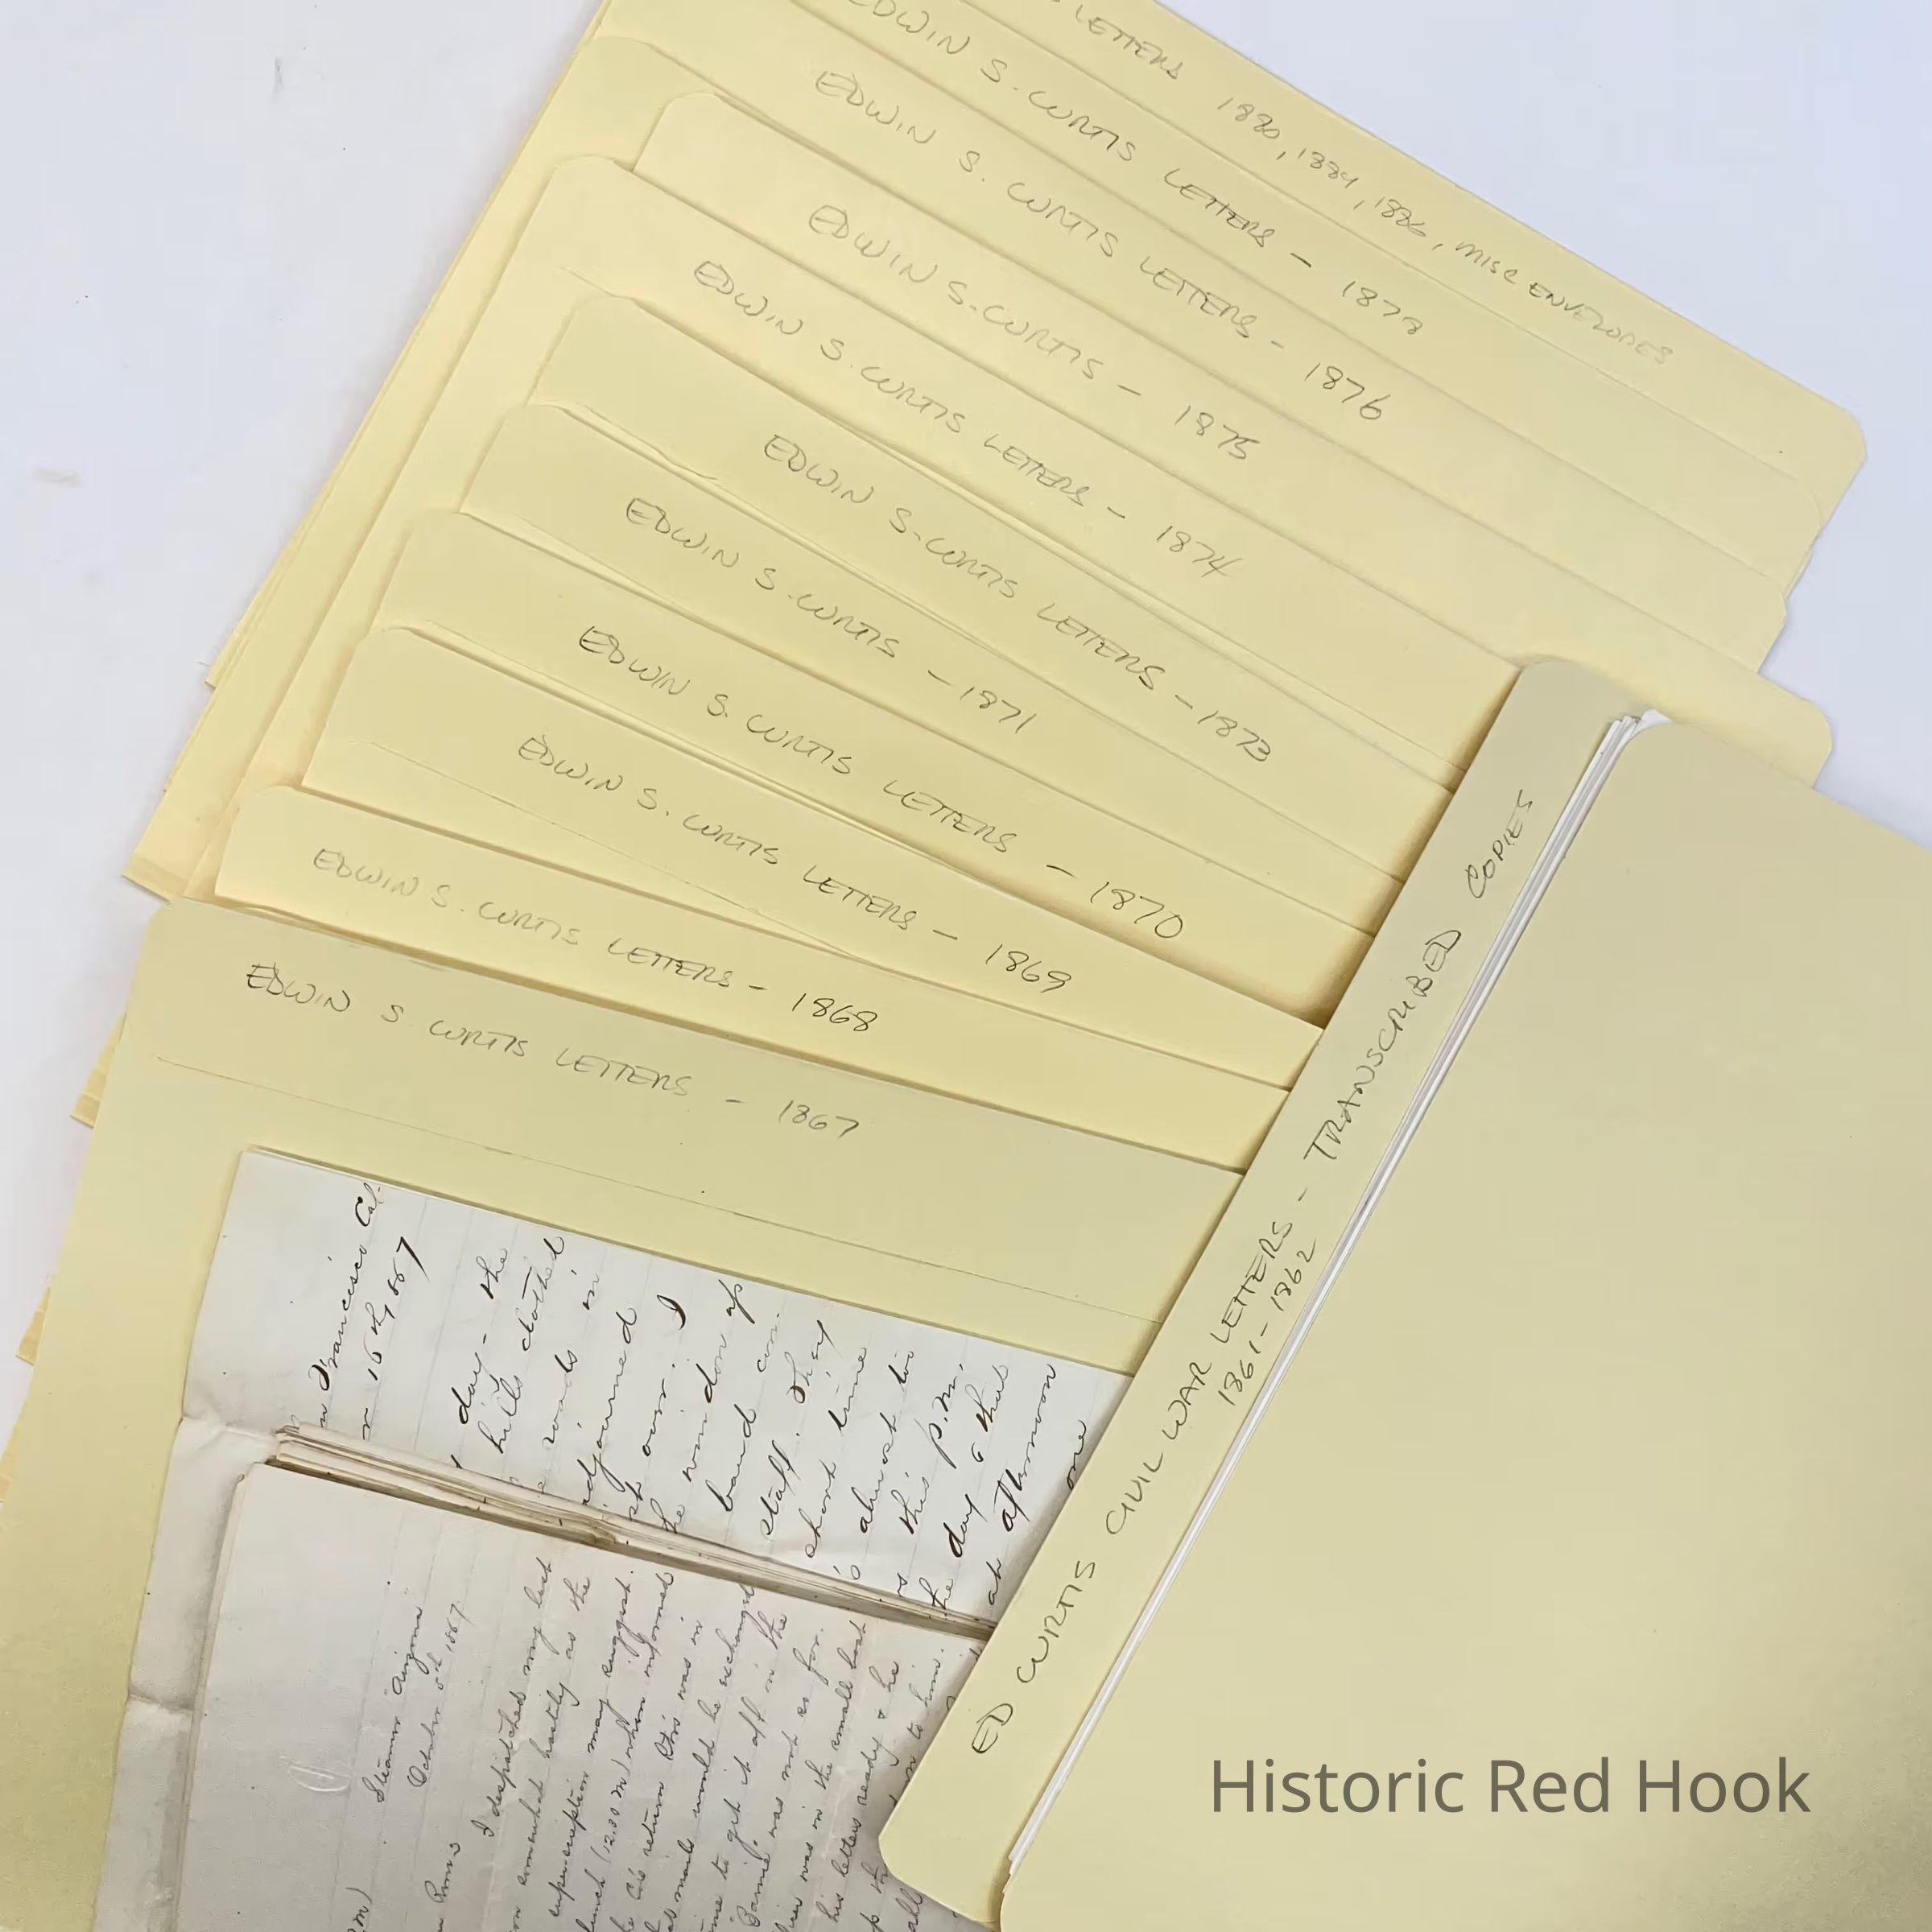 LETTERS 1880, 1884, 1886, MISC ENVELOPES
EDWIN S. CURTIS LETTERS - 1878
EDWIN S. CURTIS LETTERS - 1876
EDWIN S. CURTIS - 1875
EDWIN S. CURTIS LETTERS - 1874
EDWIN S. CURTIS LETTERS - 1873
EDWIN S. CURTIS - 1871
EDWIN S. CURTIS LETTERS - 1870
EDWIN S. CURTIS LETTERS - 1869
EDWIN S. CURTIS LETTERS - 1868
EDWIN S CURTIS LETTERS - 1867
ED CURTIS CIVIL WAR LETTERS - TRANSCRIBED COPIES
1861-1862
Francisco Cal.
16th 1867
day - the
hills clothed
in
adjourned
over. I
window up
band
staff. They
short time
almost
this p.m.
the day & that
at afternoon
one
Steamer
October 5th 1867
I despatched my last
somewhat hastily as the
superscription may suggest.
lunch (12.30 M) when informed
return this was in
mails would be exchanged
to get it off in the
was not as far.
was in the small boat
his letters ready & he
to him.
Historic Red Hook